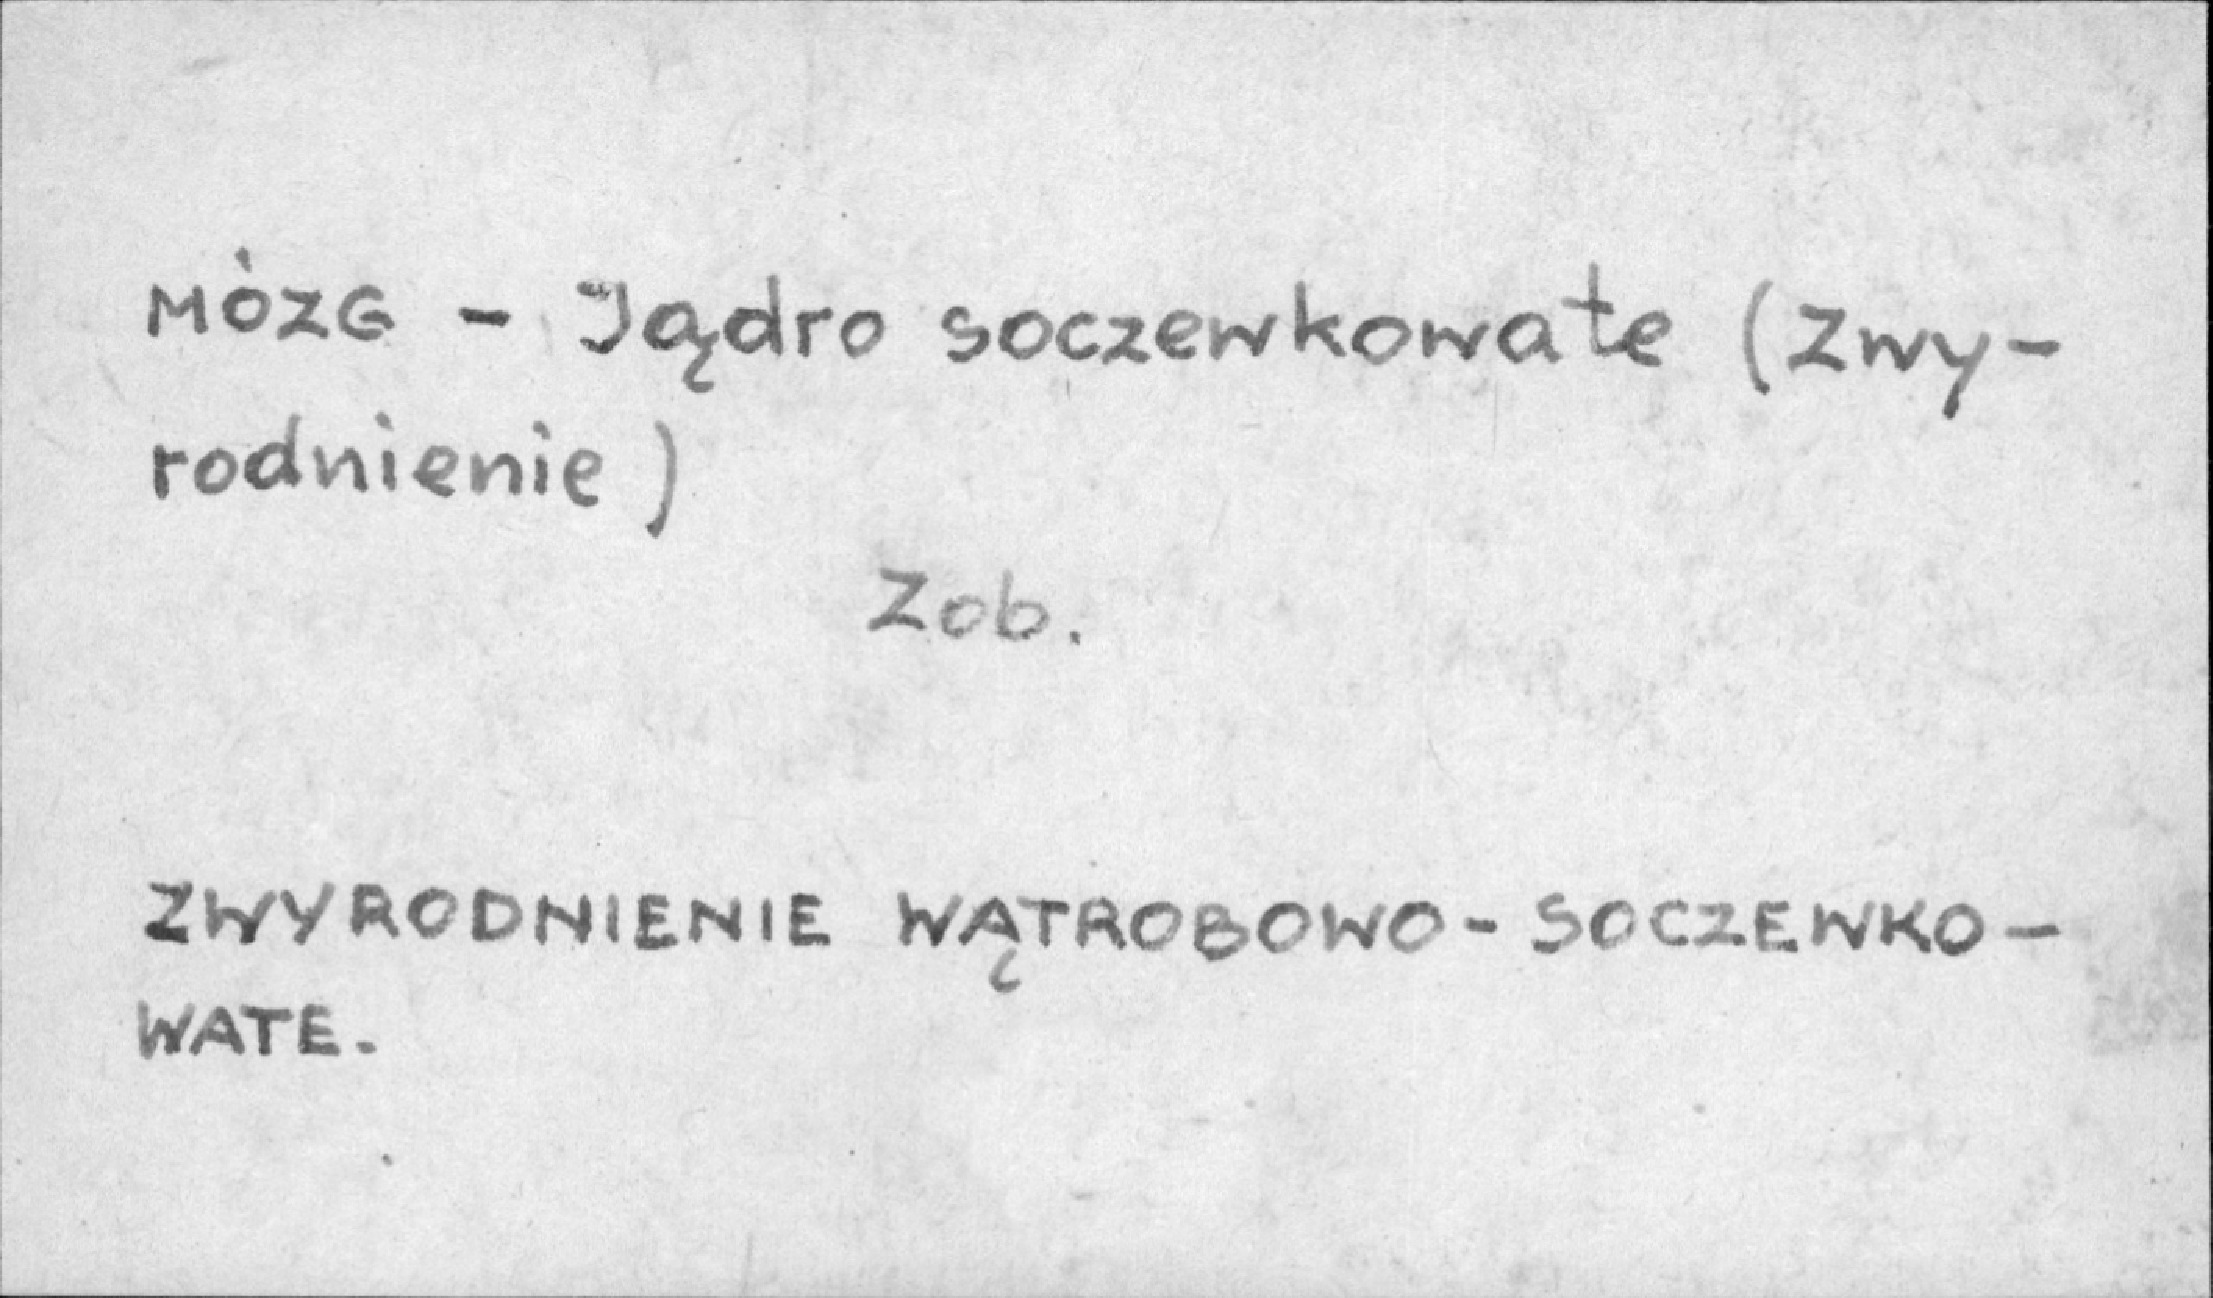 MÓZG - Jądro soczewkowate (Zwy-
rodnienie)
Zob.
ZWYRODNIENIE WĄTROBOWO-SOCZEWKO-
WATE.